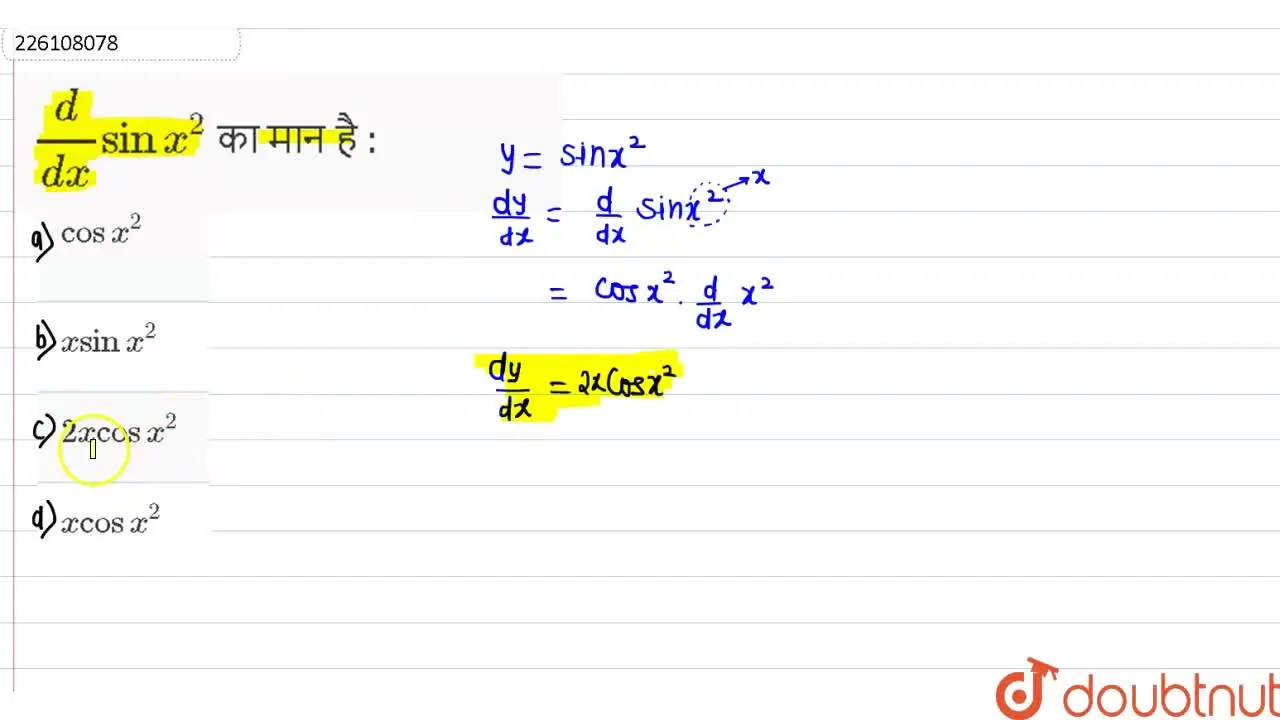 226108078
d/dx sin x² का मान है :
a) cos x²
b) x sin x²
c) 2x cos x²
d) x cos x²
y = sinx²
dy/dx = d/dx sinx² → x
= cosx² . d/dx x²
dy/dx = 2x Cosx²
doubtnut